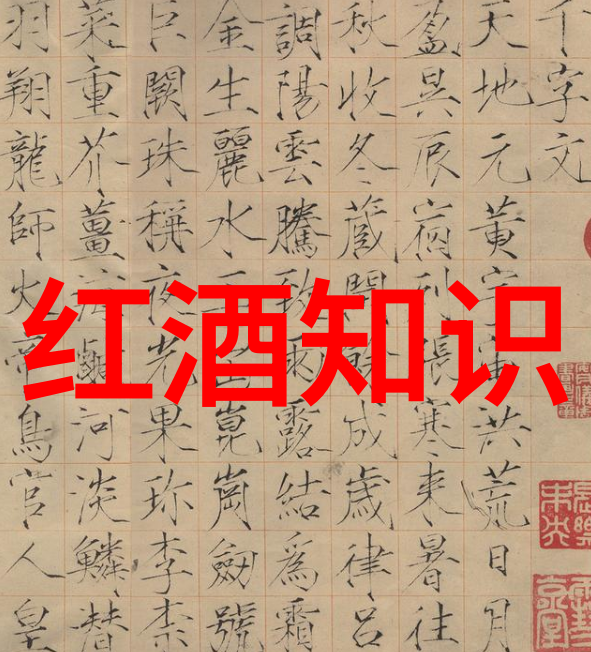 千字文
天地元黄宇宙洪荒日月
盈昃辰宿列張寒来暑往
秋收冬蔵閏餘成歲律吕
調陽雲騰致雨露結為霜
金生麗水玉出崑崗劍號
巨闕珠稱夜光果珍李柰
菜重芥薑海鹹河淡鱗潛
羽翔龍師火帝鳥官人皇
红酒知识